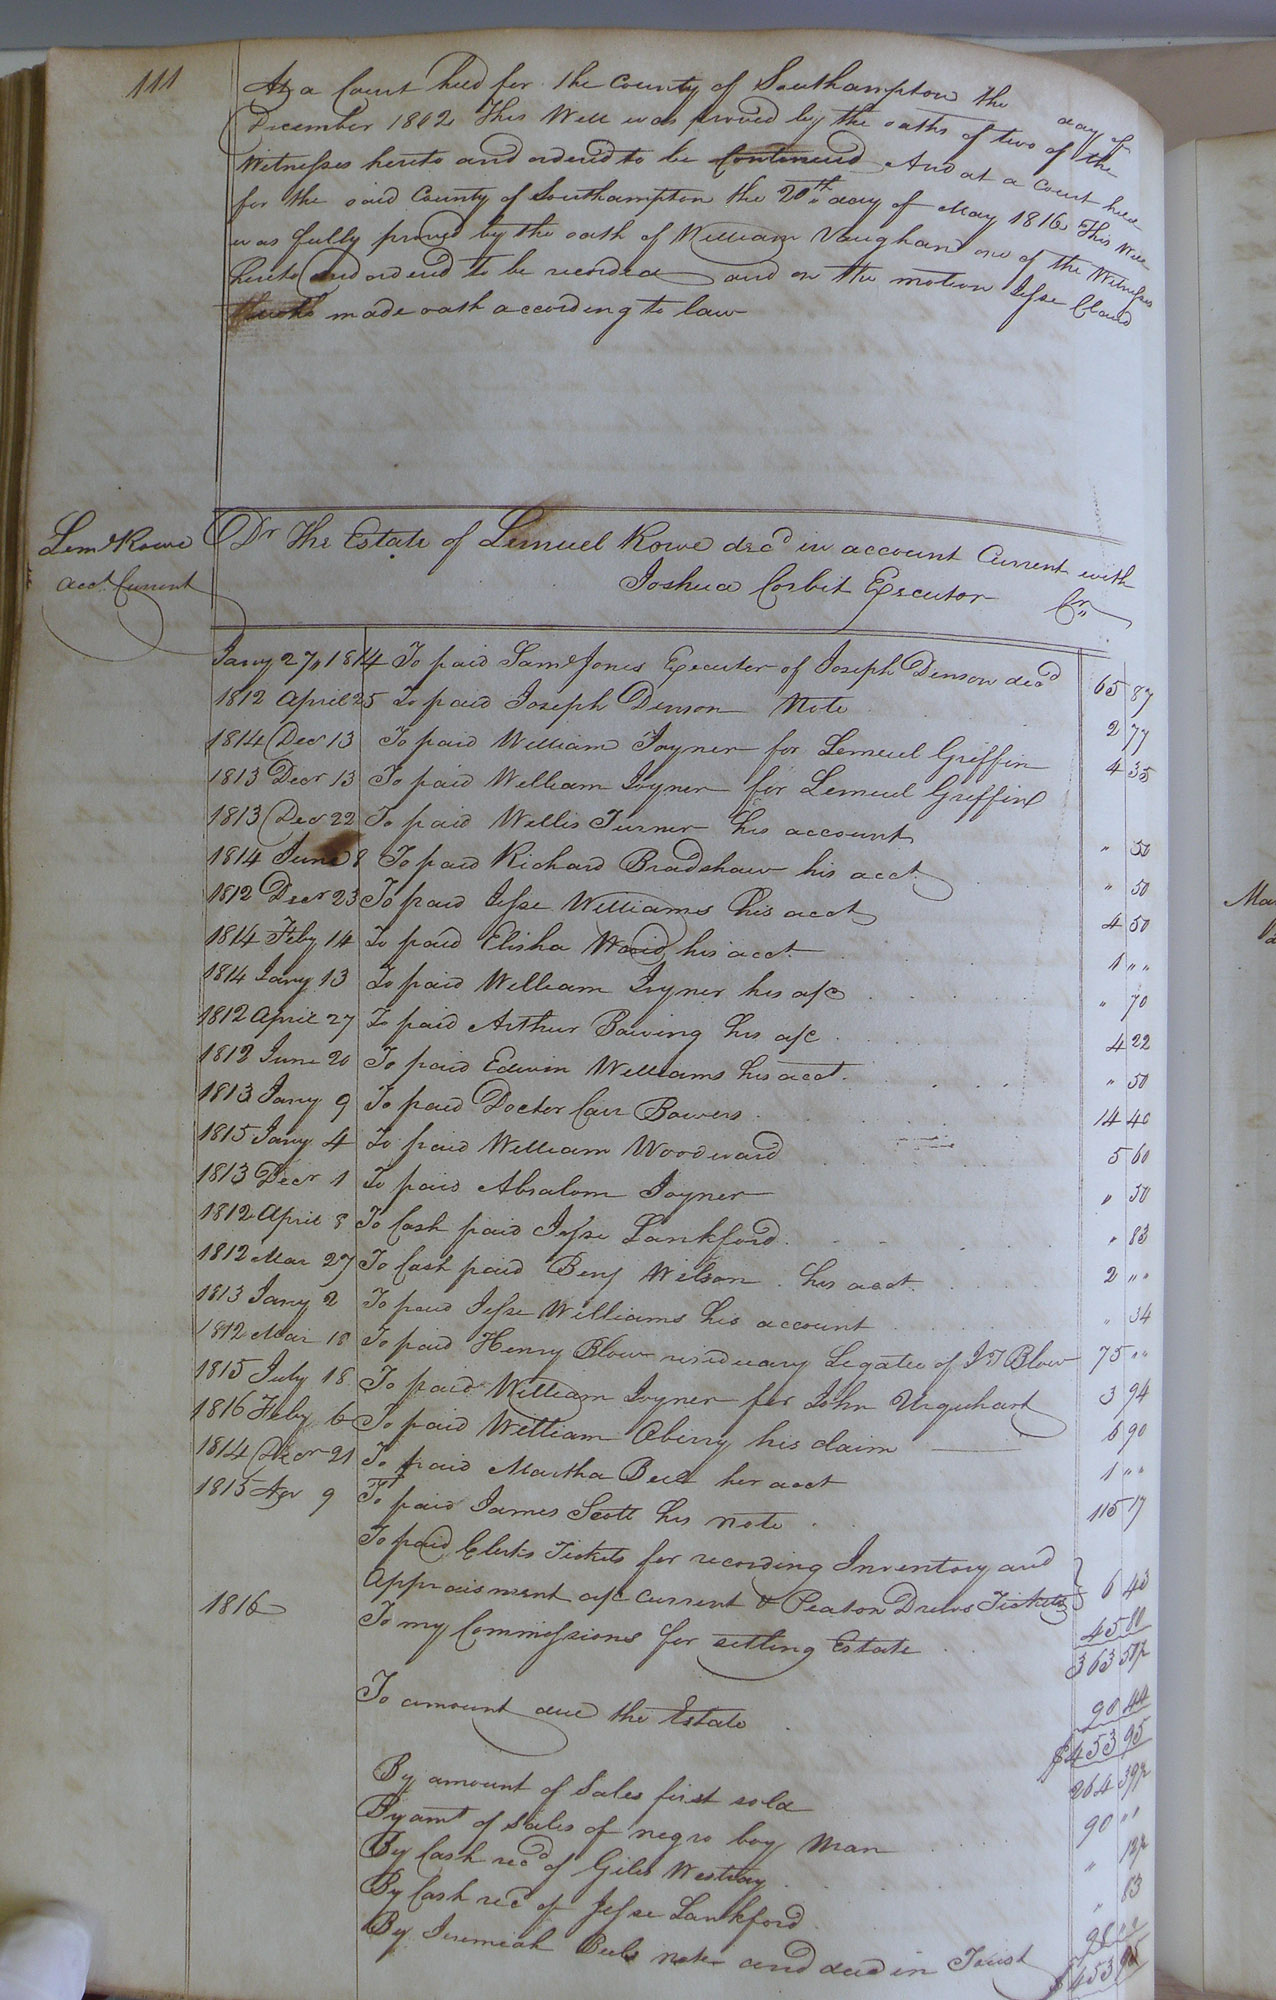 111
At a Court held for the County of Southampton the day of
December 1812 This Will was proved by the oaths of two of the
Witnesses hereto and ordered to be Continued And at a Court held
for the said County of Southampton the 20th day of May 1816 This Will
was fully proved by the oath of William Vaughan one of the Witnesses
hereto and ordered to be recorded and on the motion Jesse Claud
made oath according to law
Leml Rowe
acct Current
Dr The Estate of Lemuel Rowe decd in account Current with
Joshua Corbit Executor Cr
Jany 27, 1814 To paid Saml Jones Executor of Joseph Denson decd 65 87
1812 April 25 To paid Joseph Denson Note 2 77
1814 Decr 13 To paid William Joyner for Lemuel Griffin 4 35
1813 Decr 13 To paid William Joyner for Lemuel Griffin
1813 Decr 22 To paid Willis Turner his account " 50
1814 June 8 To paid Richard Bradshaw his acct " 50
1812 Decr 23 To paid Jesse Williams his acct 4 50
1814 Feby 14 To paid Elisha Waid his acct 1 " "
1814 Jany 13 To paid William Joyner his a/c " 70
1812 April 27 To paid Arthur Bowing his a/c 4 22
1812 June 20 To paid Edwin Williams his acct " 50
1813 Jany 9 To paid Doctor Carr Bowers 14 40
1815 Jany 4 To paid William Woodward 5 60
1813 Decr 1 To paid Absalom Joyner " 50
1812 April 8 To Cash paid Jesse Lankford " 83
1812 Mar 27 To Cash paid Benj Wilson his acct 2 " "
1813 Jany 2 To paid Jesse Williams his account " 34
1812 Mar 18 To paid Henry Blow residuary Legatee of J T Blow 75 " "
1815 July 18 To paid William Joyner for John Urquhart 3 94
1816 Feby 6 To paid William Aberry his claim 6 90
1814 Decr 21 To paid Martha Beel her acct 1 " "
1815 Apr 9 To paid James Scott his note 115 17
To paid Clerks Tickets for recording Inventory and
Appraisment a/c current & Peaton Drews Tickets 6 43
1816 To my Commissions for settling Estate 45 00
363 50½
To amount due the Estate 90 44
$453 95
By amount of Sales first sold 264 39½
By amt of sales of negro boy Man 90 " "
By Cash recd of Giles Westray " 12½
By Cash recd of Jesse Lankford " 83
By Jeremiah Beels note and deed in Trust 98 " "
$453 95